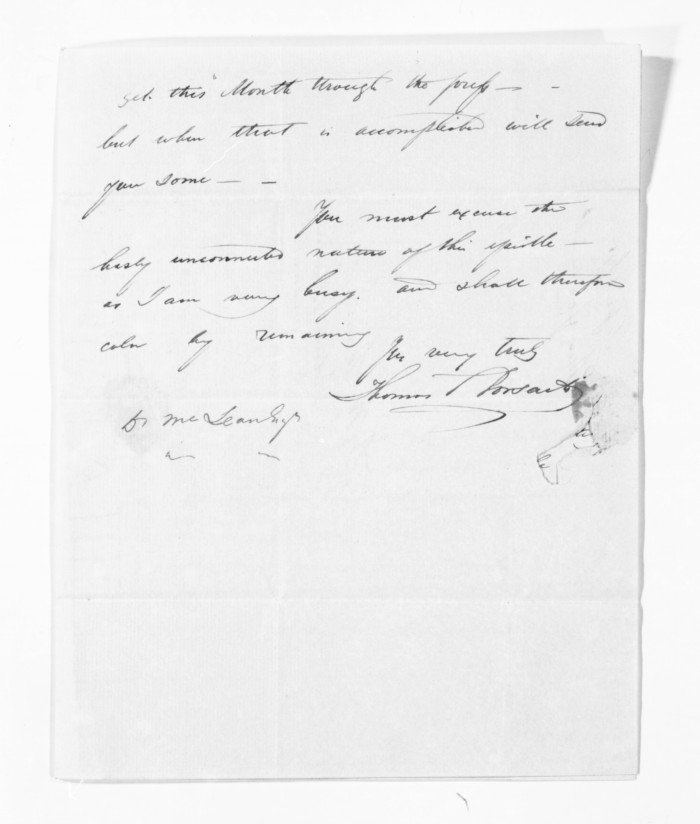 get this Month through the press – –
but when that is accomplished will send
you some – –
You must excuse the
hasty unconnected nature of this epistle –
as I am very busy. and shall therefore
by remaining
very truly
Thomas
D. McLean Esqr